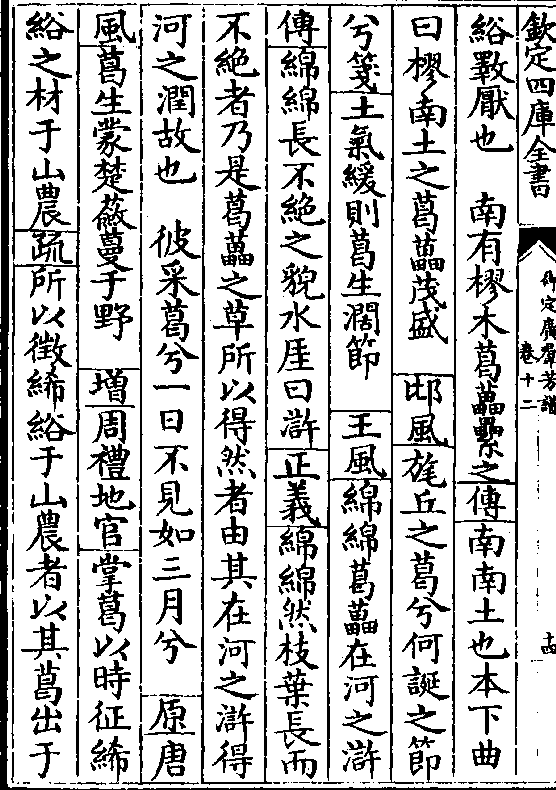 欽定四庫全書
御定廣羣芳譜
卷十二
十四
綌斁厭也　南有樛木葛藟纍之傳南南土也本下曲
曰樛南土之葛藟茂盛　邶風旄丘之葛兮何誕之節
兮箋土氣緩則葛生濶節　王風綿綿葛藟在河之滸
傳綿綿長不絶之貌水厓曰滸正義綿綿然枝葉長而
不絶者乃是葛藟之草所以得然者由其在河之滸得
河之潤故也　彼采葛兮一日不見如三月兮　原唐
風葛生蒙楚蘞蔓于野　増周禮地官掌葛以時征絺
綌之材于山農疏所以徴絺綌于山農者以其葛出于